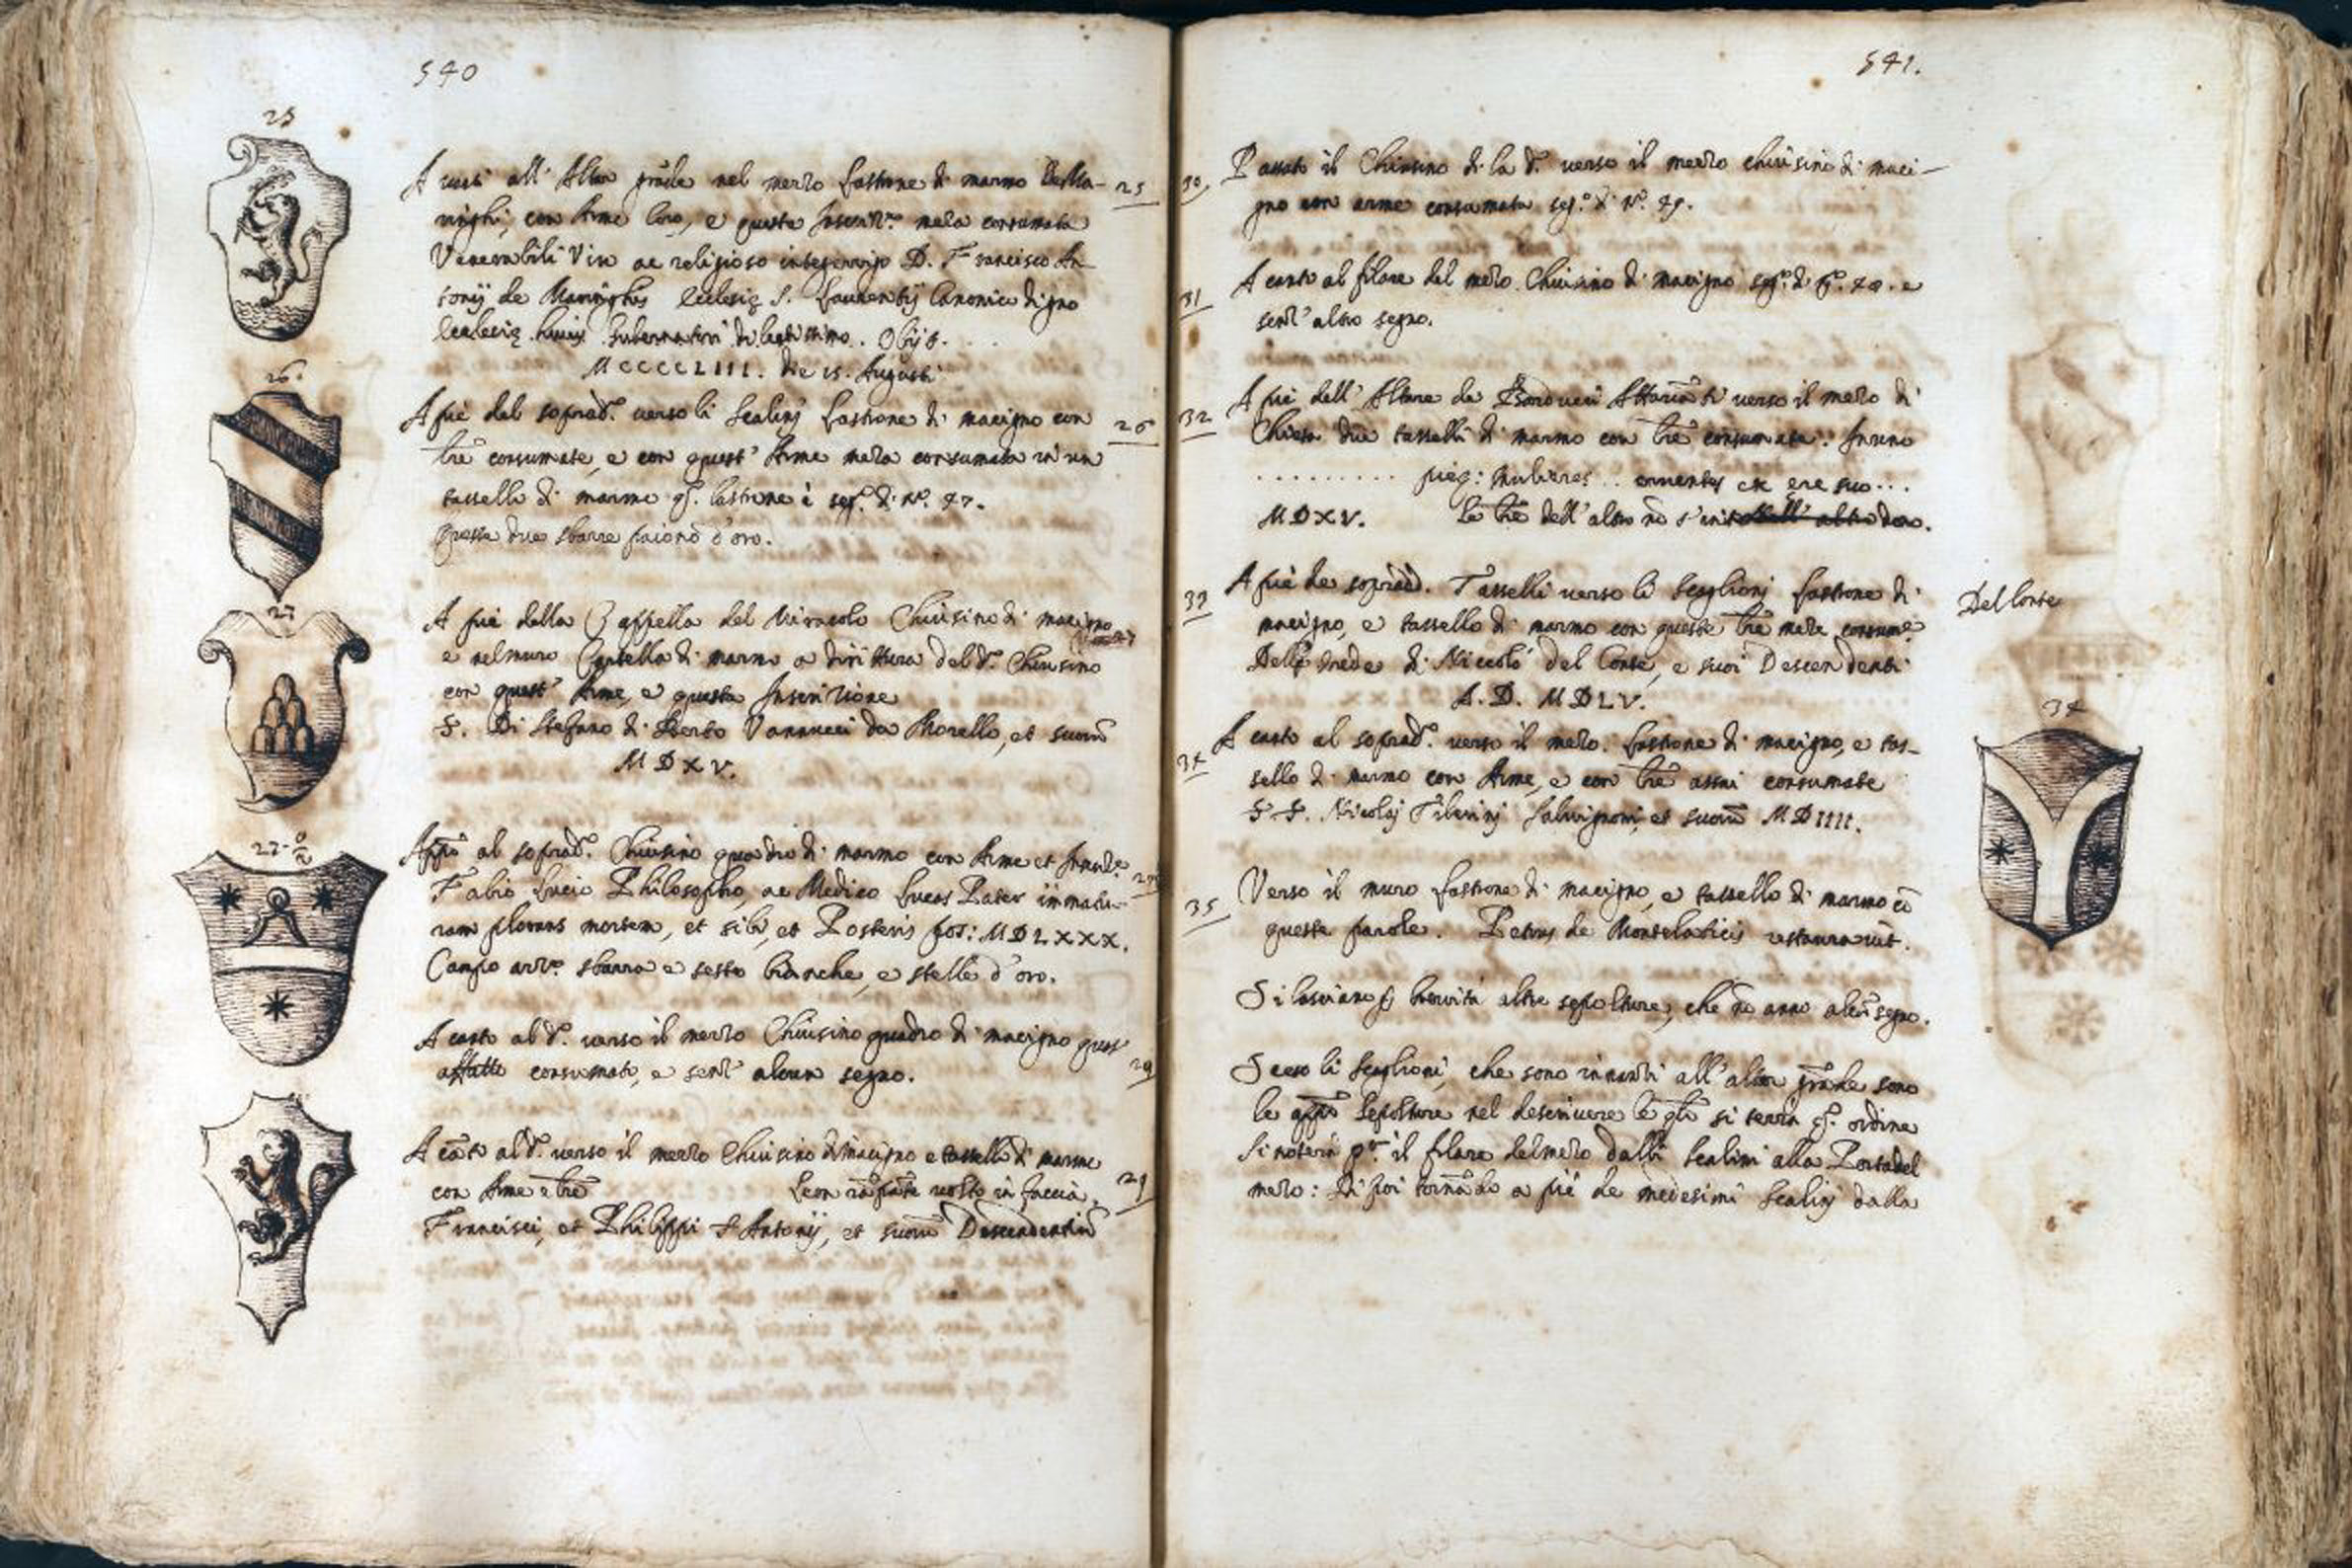 540
25
Avanti all'Altar grãde nel mezzo lastrone di marmo de Ma- 25
ringhi, con Arme loro, e questa Inscriz.ne meza consumata
Venerabili Viro ac religioso D. Francisco An-
tonij de Maringhis Ecclesię S. Laurentij Canonico digno
Ecclesię huius Gubernatori dilectissimo. Obijt.
MCCCCLIII. die 15. Augusti
26
A piè del soprad.o verso li Scalinj lastrone di macigno con 26
lr̃e consumate, e con quest'Arme meza consumata in un
tassello di marmo q.o lastrone è seg.o di N.o 47.
queste due sbarre paiono d'oro.
27
A piè della Cappella del Miracolo Chiusino di macigno
e nel muro Cartella di marmo a dirittura del d.o Chiusino
con quest'Arme, e questa Inscrizione
S. Di Stefano di Berto Vannucci da Morello, et suorũ
MDXV.
27-o/2
App.o al soprad.o Chiusino quadro di marmo con Arme et Inscriz.e
Fabio Lucio Philosopho, ac Medico Lucas Pater immatu-
ram plorans mortem, et sibi, et Posteris pos: MDLXXX.
Campo azz.o sbarra e sesto bianche, e stelle d'oro.
A canto al d.o verso il mezzo Chiusino quadro di macigno quasi
affatto consumato, e senz'alcun segno. 28
A cãto al d.o verso il mezzo Chiusino di macigno e tassello di marmo
con Arme e lr̃e Leon rãpãte volto in faccia. 29
Francisci, et Philippi S. Antonij, et suorũ Descendentiũ
541.
30 Passato il Chiusino di là d.o verso il mezzo chiusino di maci-
gno con arme consumata seg.o di N.o 49.
31 A canto al filare del mezo Chiusino di macigno seg.o di N.o 48. e
senz'altro segno.
32 A piè dell'Altare de Bonaveri Attavãti verso il mezo di
Chiesa due tasselli di marmo con lr̃e consumate. In uno
.......... pięq: mulieres .. ex ęre suo...
MDXV. Le lr̃e dell'altro nõ
33 A piè de soprad.i Tasselli verso li Scaglioni lastrone di
macigno, e tassello di marmo con queste lr̃e meze consum.e
Delle rede di Niccolò del Conte, e suoi Descendenti
A. D. MDLV.
Del Conte
34 A canto al soprad.o verso il mezo. lastrone di macigno, e tas-
sello di marmo con Arme, e con lr̃e assai consumate
S. S. Nicolaj Tiberinj Salvignoni, et suorũ MDIIII.
34
35 Verso il muro lastrone di macigno, e tassello di marmo cõ
queste parole. Petrus de Montelaticis restauravit.
Si lasciano p brevità altre sepolture, che nõ anno alcũ segno.
Sceso li Scaglioni, che sono innanzi all'altar grãde sono
le app.o sepolture nel descrivere le qli si terrà q.o ordine
Si noterà p.o il filare del mezo dalli Scalini alla Porta del
mezo: Di poi tornãdo a piè de medesimi Scalinj dalla